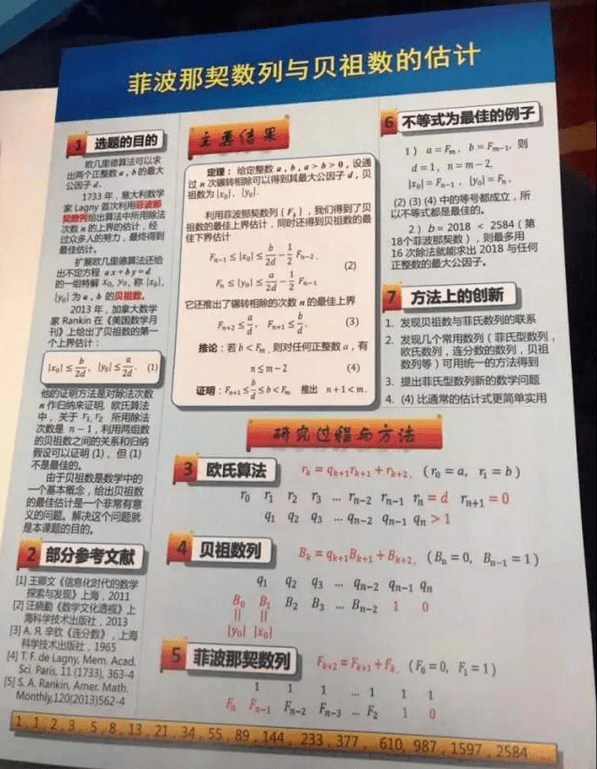 菲波那契数列与贝祖数的估计
1 选题的目的
欧几里德算法可以求
出两个正整数 a , b 的最大
公因子 d.
1733 年，意大利数学
家 Lagny 首次利用菲波那
契数列给出算法中所用除法
次数 n 的上界的估计，经
过众多人的努力，最终得到
最佳估计。
扩展欧几里德算法还给
出不定方程 ax+by=d
的一组特解 x₀, y₀, 称 |x₀|,
|y₀| 为 a , b 的贝祖数。
2013 年，加拿大数学
家 Rankin 在《美国数学月
刊》上给出了贝祖数的第一
个上界估计：
|x₀| ≤ b/2d, |y₀| ≤ a/2d. (1)
他的证明方法是对除法次数
n 作归纳来证明, 欧氏算法
中，关于 r₁, r₂ 所用除法
次数是 n − 1，利用两组数
的贝祖数之间的关系和归纳
假设可以证明 (1)、但 (1)
不是最佳的。
由于贝祖数是数学中的
一个基本概念，给出贝祖数
的最佳估计是一个非常有意
义的问题。解决这个问题就
是本课题的目的。
2 部分参考文献
[1] 王卿文《信息化时代的数学
探索与发现》上海，2011
[2] 汪晓勤《数学文化透视》上
海科学技术出版社，2013
[3] А. Я. 辛钦《连分数》，上海
科学技术出版社，1965
[4] T. F. de Lagny, Mem. Acad.
Sci. Paris, 11 (1733), 363-4
[5] S. A. Rankin, Amer. Math.
Monthly,120(2013)562-4
主要结果
定理： 给定整数 a , b , a > b > 0 , 设通
过 n 次辗转相除可以得到其最大公因子 d , 贝
祖数为 |x₀|, |y₀|.
利用菲波那契数列 {Fₖ}，我们得到了贝
祖数的最佳上界估计，同时还得到贝祖数的最
佳下界估计
Fₙ₋₁ ≤ |x₀| ≤ b/2d − 1/2 Fₙ₋₂.
(2)
Fₙ ≤ |y₀| ≤ a/2d − 1/2 Fₙ₋₁
它还推出了辗转相除的次数 n 的最佳上界
Fₙ₊₂ ≤ a/d, Fₙ₊₁ ≤ b/d. (3)
推论：若 b < Fₘ, 则对任何正整数 a，有
n ≤ m − 2 (4)
证明：Fₙ₊₁ ≤ b/d ≤ b < Fₘ 推出 n + 1 < m.
6 不等式为最佳的例子
1） a = Fₘ, b = Fₘ₋₁, 则
d = 1, n = m − 2,
|x₀| = Fₙ₋₁, |y₀| = Fₙ,
(2) (3) (4) 中的等号都成立，所
以不等式都是最佳的。
2） b = 2018 < 2584（第
18个菲波那契数），则最多用
16 次除法就能求出 2018 与任何
正整数的最大公因子。
7 方法上的创新
1. 发现贝祖数与菲氏数列的联系
2. 发现几个常用数列（菲氏型数列，
欧氏数列，连分数的数列，贝祖
数列等）可用统一的方法得到
3. 提出菲氏型数列新的数学问题
4. (4) 比通常的估计式更简单实用
研究过程与方法
3 欧氏算法 rₖ = qₖ₊₁rₖ₊₁ + rₖ₊₂, (r₀ = a, r₁ = b)
r₀ r₁ r₂ r₃ ... rₙ₋₂ rₙ₋₁ rₙ = d rₙ₊₁ = 0
q₁ q₂ q₃ ... qₙ₋₂ qₙ₋₁ qₙ > 1
4 贝祖数列 Bₖ = qₖ₊₁Bₖ₊₁ + Bₖ₊₂, (Bₙ = 0, Bₙ₋₁ = 1)
q₁ q₂ q₃ ... qₙ₋₂ qₙ₋₁ qₙ
B₀ B₁ B₂ B₃ ... Bₙ₋₂ 1 0
|| ||
|y₀| |x₀|
5 菲波那契数列 Fₖ₊₂ = Fₖ₊₁ + Fₖ, (F₀ = 0, F₁ = 1)
1 1 1 ... 1 1 1
Fₙ Fₙ₋₁ Fₙ₋₂ Fₙ₋₃ ... F₂ 1 0
1 , 1 , 2 , 3 , 5 , 8 , 13 , 21 , 34 , 55 , 89 , 144 , 233 , 377 , 610, 987 , 1597 , 2584 ...